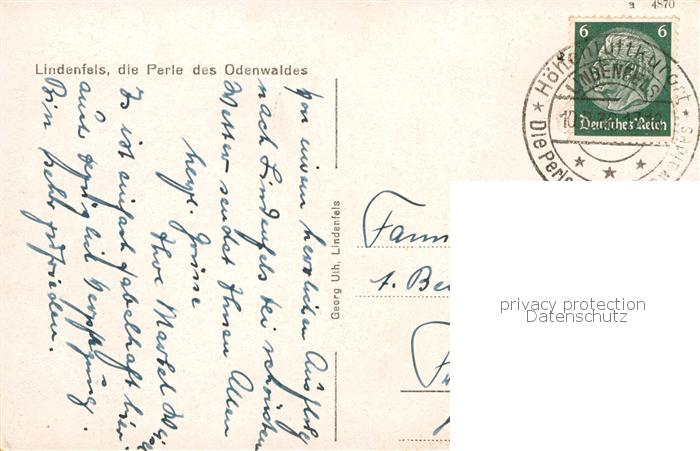 a 4870
Lindenfels, die Perle des Odenwaldes
Von einem herrlichen Ausflug
nach Lindenfels bei schönstem
Wetter sendet Ihnen Allen
herzl. Grüsse
Ihre Marbel
Es ist einfach fabelhaft hier
auch bezüglich Verpflegung.
Bin sehr zufrieden.
Georg Ulh, Lindenfels
6 6
Deutsches Reich
Höhenluftkurort
LINDENFELS
Die Perle
Fam
privacy protection
Datenschutz